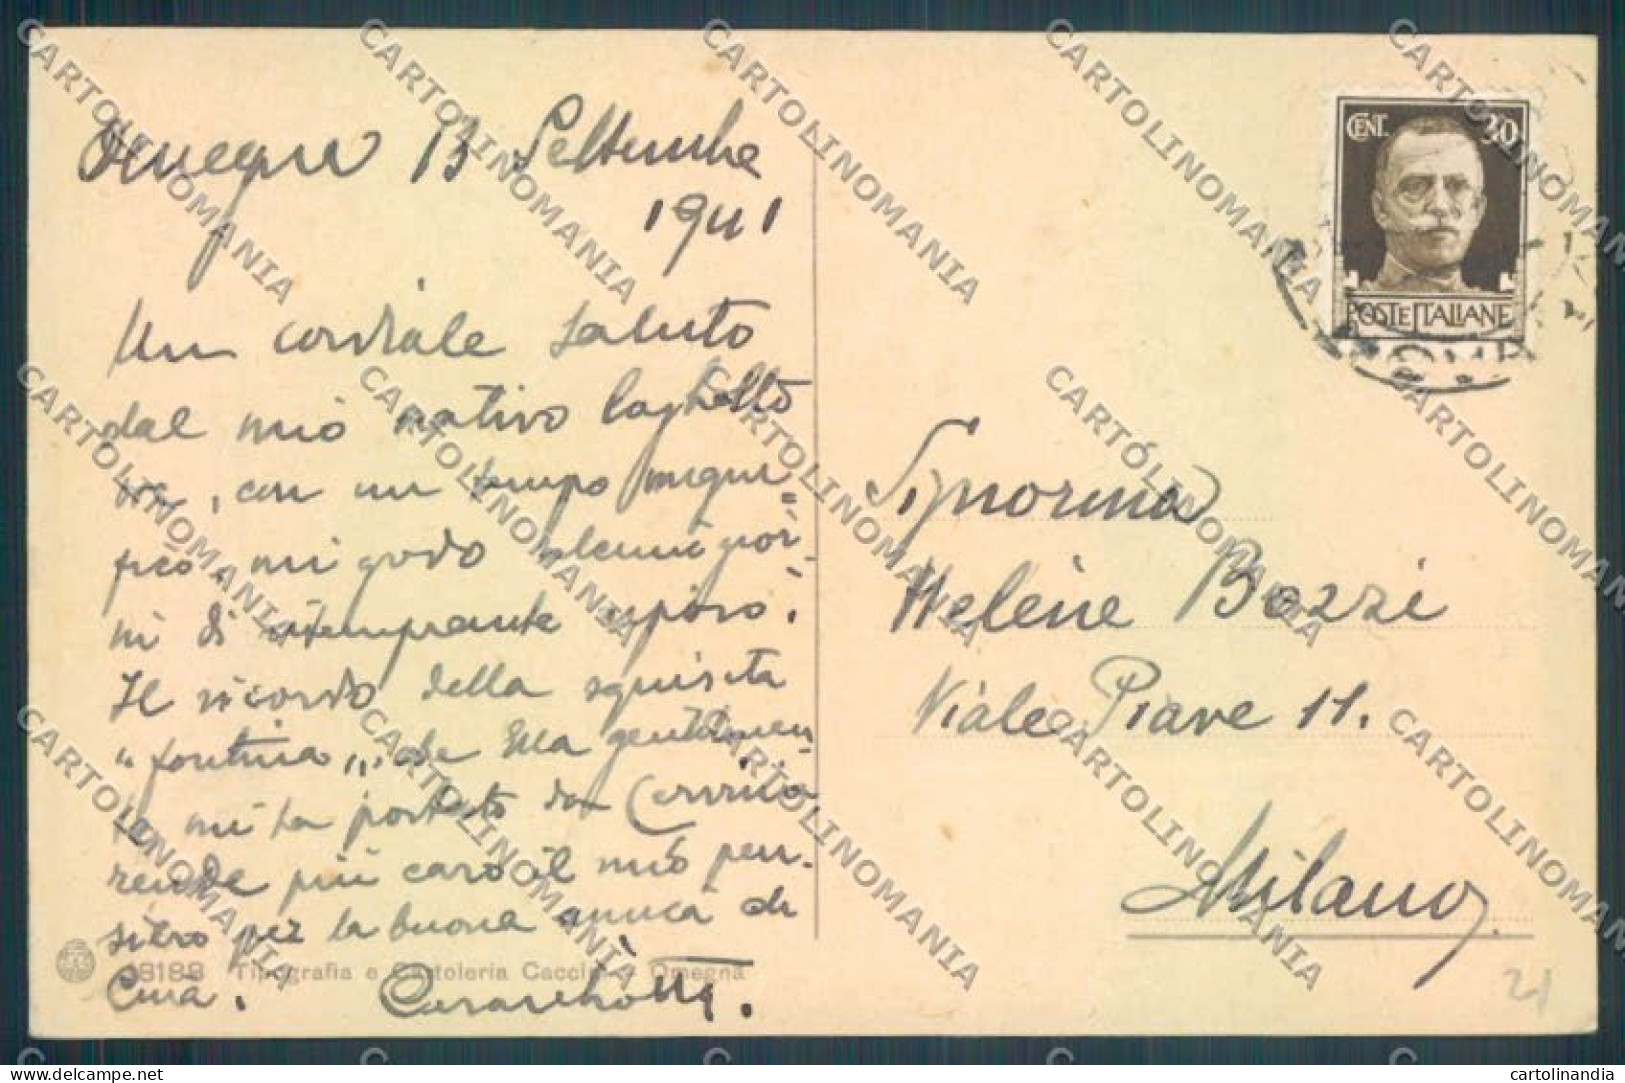 Omegna 13 Settembre
1941
Un cordiale saluto
dal mio nativo laghetto
, con un tempo magni=
fico, mi godo alcuni gior=
ni di ritemprante riposo.
Il ricordo della squisita
"fontina", che Ella gentilmen
te mi ha portato da Cervinia
rende più caro il mio pen-
siero per la buona amica di
Cura.
CENT. 30
POSTE ITALIANE
Signorina
Helène Bozzi
Viale Piave 11.
Milano.
18188 Tipografia e Cartoleria Caccini - Omegna
21
CARTOLINOMANIA
cartolinandia
www.delcampe.net